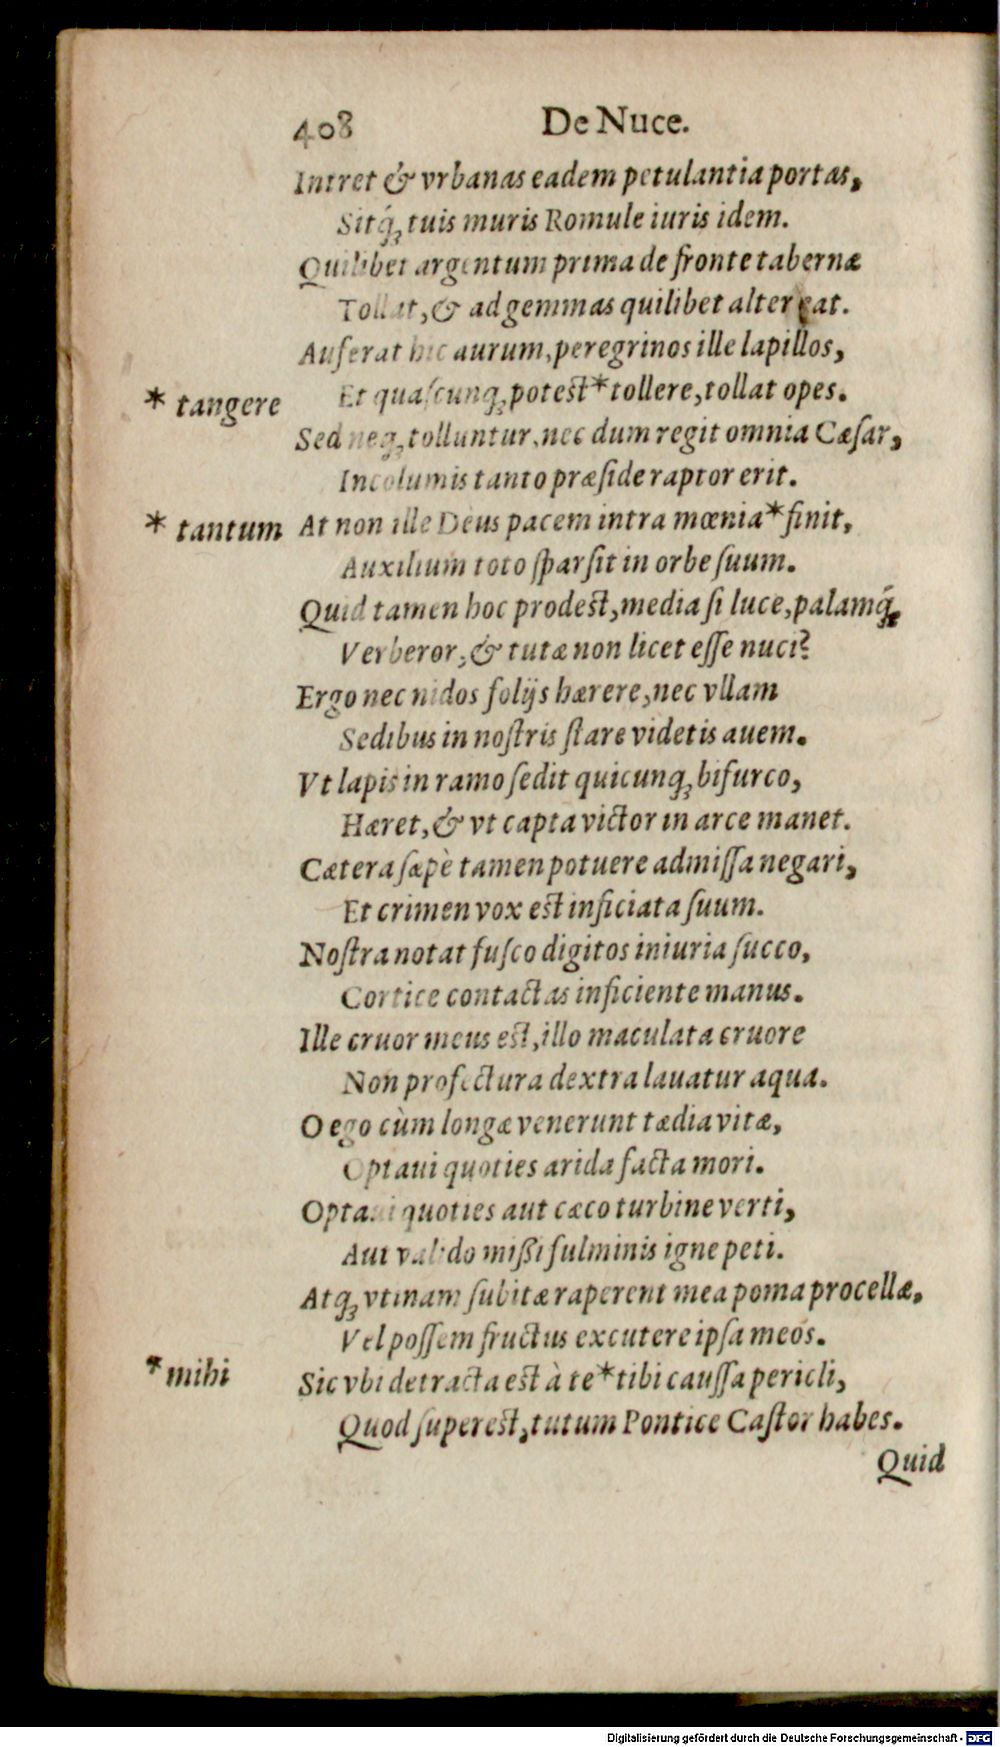 408 De Nuce.
Intret & vrbanas eadem petulantia portas,
Sitq́ꝫ tuis muris Romule iuris idem.
Quilibet argentum prima de fronte tabernæ
Tollat, & ad gemmas quilibet alter eat.
Auferat hic aurum, peregrinos ille lapillos,
* tangere Et quaſcunqꝫ potest * tollere, tollat opes.
Sed neqꝫ tolluntur, nec dum regit omnia Cæſar,
Incolumis tanto præſide raptor erit.
* tantum At non ille Deus pacem intra mœnia * finit,
Auxilium toto ſparſit in orbe ſuum.
Quid tamen hoc prodest, media ſi luce, palamq́ꝫ
Verberor, & tutæ non licet eſſe nuci?
Ergo nec nidos folijs hærere, nec vllam
Sedibus in noſtris ſtare videtis auem.
Vt lapis in ramo ſedit quicunqꝫ bifurco,
Hæret, & vt capta victor in arce manet.
Cætera ſæpè tamen potuere admiſſa negari,
Et crimen vox est inficiata ſuum.
Noſtra notat fuſco digitos iniuria ſucco,
Cortice contactas inficiente manus.
Ille cruor meus est, illo maculata cruore
Non profectura dextra lauatur aqua.
O ego cùm longæ venerunt tædia vitæ,
Optaui quoties arida facta mori.
Optaui quoties aut cæco turbine verti,
Aut valido mißi fulminis igne peti.
Atqꝫ vtinam ſubitæ raperent mea poma procellæ,
Vel poſſem fructus excutere ipſa meos.
* mihi Sic vbi detracta est à te * tibi cauſſa pericli,
Quod ſuperest, tutum Pontice Caſtor habes.
Quid
Digitalisierung gefördert durch die Deutsche Forschungsgemeinschaft - DFG